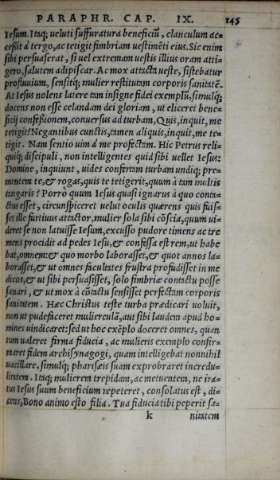 PARAPHR. CAP. IX. 145
Iesum. Itaq; veluti suffuratura beneficiũ, clanculum ac-
cessit à tergo, ac tetigit fimbriam vestimẽti eius. Sic enim
sibi persuaserat, si uel extremam uestis illius oram atti-
gero, salutem adipiscar. Ac mox attactu uestis, sistebatur
profluuium, sensitq; mulier restitutam corporis sanitatẽ.
At Iesus nolens latere tam insigne fidei exemplũ, simulq;
docens non esse celandam dei gloriam, ut eliceret bene-
ficij confessionem, conuersus ad turbam, Quis, inquit, me
tetigit? Negantibus cunctis, tamen aliquis, inquit, me te-
tigit. Nam sentio uim à me profectam. Hic Petrus reli-
quiq; discipuli, non intelligentes quid sibi uellet Iesus:
Domine, inquiunt, uides confertam turbam undiq; pre-
mentem te, & rogas, quis te tetigerit, quum à tam multis
tangaris? Porrò quum Iesus quasi ignarus à quo conta-
ctus esset, circunspiceret uelut oculis quærens quis fuis-
set ille furtiuus attactor, mulier sola sibi cõscia, quum ui-
deret se non latuisse Iesum, excusso pudore timens ac tre
mens procidit ad pedes Iesu, & confessa est rem, ut habe
bat, omnem: & quo morbo laborasset, & quot annos la-
borasset, & ut omnes facultates frustra profudisset in me
dicos, & ut sibi persuasisset, solo fimbriæ contactu posse
sanari, & ut mox à cõtactu sensisset perfectam corporis
sanitatem. Hæc Christus teste turba prædicari uoluit,
non ut pudefaceret mulierculã, aut sibi laudem apud ho-
mines uindicaret: sed ut hoc exẽplo doceret omnes, quan
tum ualeret firma fiducia, ac mulieris exemplo confir-
maret fidem archisynagogi, quam intelligebat nonnihil
uacillare, simulq; pharisæis suam exprobraret incredu-
litatem. Itaq; mulierem trepidam, ac metuentem, ne ira-
tus Iesus suum beneficium repeteret, consolatus est, di-
cens, Bono animo esto filia. Tua fiducia tibi peperit sa-
k niatem